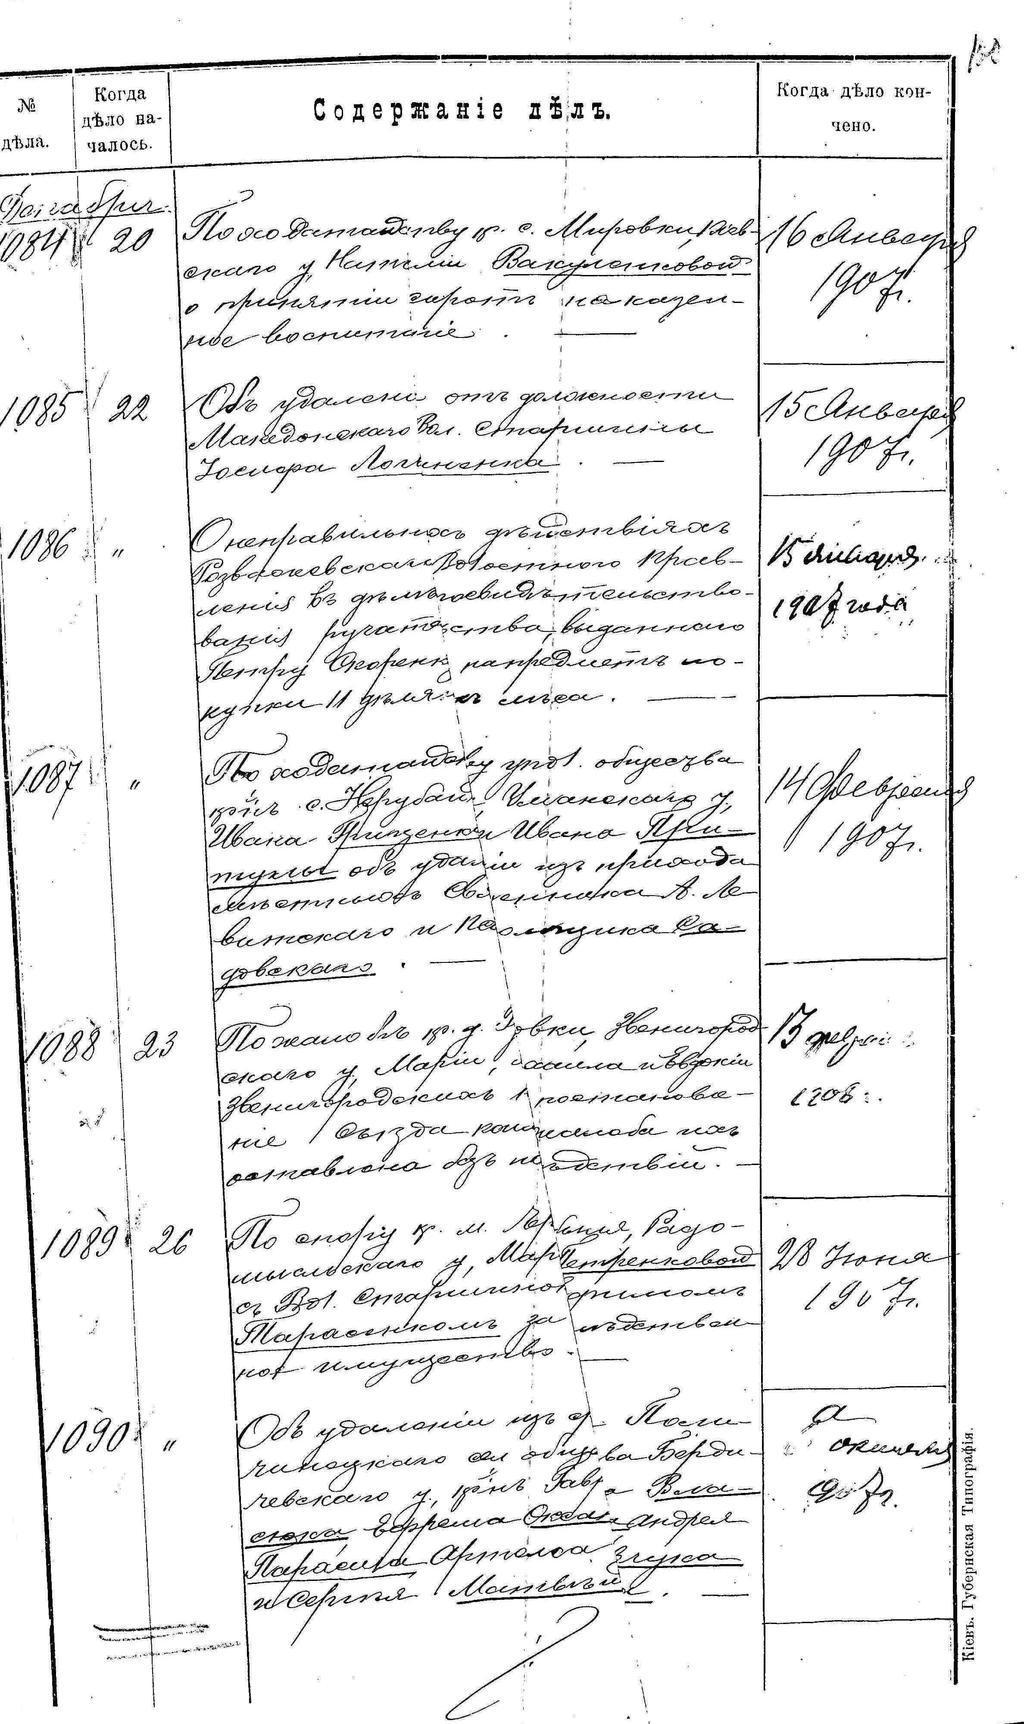 № дѣла.
Когда дѣло на-
чалось.
Содержаніе дѣлъ.
Когда дѣло кон-
чено.
1084 20 По ходатайству кр. с. Мировки, Кіев-
скаго у, Наталіи Вакуленковой
о принятіи сиротъ на казен-
ное воспитаніе.
16 Января
1907г.
1085 22 Объ удаленіи отъ должности
Македонскаго Вол. Старшины
Іосифа Логиненка.
15 Января
1907г.
1086 " О неправильныхъ дѣйствіяхъ
Волостного Прав-
ленія въ дѣлѣ
ванія ручательства, выданнаго
Петру на предметъ по-
купки 11 лѣса.
15 Января
1907 года
1087 " По ходатайству упол. общества
кр. с. Нерубай, Уманскаго у,
Ивана Гриценка и Ивана При-
тулы объ удаленіи изъ прихода
мѣстныхъ Священника А. Ле-
витскаго и Псаломщика Са-
довскаго.
14 Февраля
1907г.
1088 23 По жалобѣ кр. д. Звенигород-
скаго у, Маріи, и Евдокіи
Звенигородскихъ постановле-
ніе Съѣзда жалоба ихъ
оставлена безъ послѣдствій.
13
1089 26 По спору кр. м. Радо-
мысльскаго у, Петренковой
съ Вол. Старшиной
Тарасенкомъ за наслѣдствен-
ное имущество.
28 Іюня
1907г.
1090 " Объ удаленіи изъ
сел общества Берди-
чевскаго у, Вла-
сюка, Ефрема Андрея
Параси Артема
и Сергѣя
1907г.
Кіевъ. Губернская Типографія.